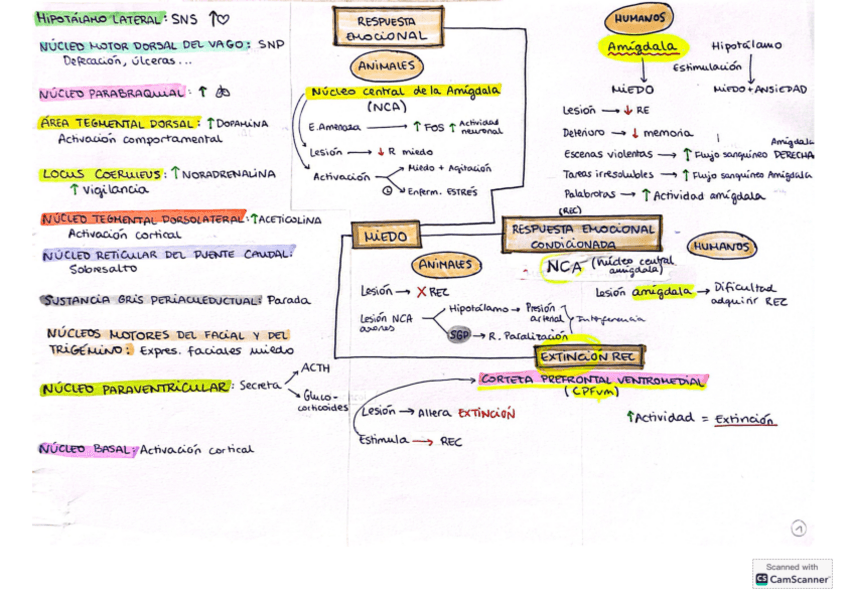 HIPOTÁLAMO LATERAL: SNS ↑♡
NÚCLEO MOTOR DORSAL DEL VAGO: SNP
Defecación, úlceras...
NÚCLEO PARABRAQUIAL: ↑
ÁREA TEGMENTAL DORSAL: ↑DOPAMINA
Activación comportamental
LOCUS COERULEUS: ↑NORADRENALINA
↑ Vigilancia
NÚCLEO TEGMENTAL DORSOLATERAL: ↑ACETICOLINA
Activación cortical
NÚCLEO RETICULAR DEL PUENTE CAUDAL:
Sobresalto
SUSTANCIA GRIS PERIACUEDUCTUAL: Parada
NÚCLEOS MOTORES DEL FACIAL Y DEL
TRIGÉMINO: Expres. faciales miedo
NÚCLEO PARAVENTRICULAR: Secreta
ACTH
Gluco-
corticoides
NÚCLEO BASAL: Activación cortical
RESPUESTA
EMOCIONAL
ANIMALES
Núcleo central de la Amígdala
(NCA)
E.Amenaza → ↑ FOS ↑ Actividad
neuronal
Lesión → ↓ R miedo
Activación
Miedo + Agitación
Enferm. ESTRÉS
HUMANOS
Amígdala
Hipotálamo
Estimulación
MIEDO
MIEDO + ANSIEDAD
Lesión → ↓ RE
Deterioro → ↓ memoria
Escenas violentas → ↑ Flujo sanguíneo Amígdala DERECHA
Tareas irresolubles → ↑ Flujo sanguíneo Amígdala
Palabrotas → ↑ Actividad amígdala
MIEDO
(REC)
RESPUESTA EMOCIONAL
CONDICIONADA
ANIMALES
Lesión → X REC
Lesión NCA
axones
Hipotálamo → Presión
arterial
SGP → R. Paralización
Interferencia
NCA (núcleo central
amígdala)
HUMANOS
Lesión amígdala → Dificultad
adquirir REC
EXTINCIÓN REC
CORTEZA PREFRONTAL VENTROMEDIAL
(CPFvm)
Lesión → Altera EXTINCIÓN
Estimula → REC
↑Actividad = Extinción
1
Scanned with
CS CamScanner